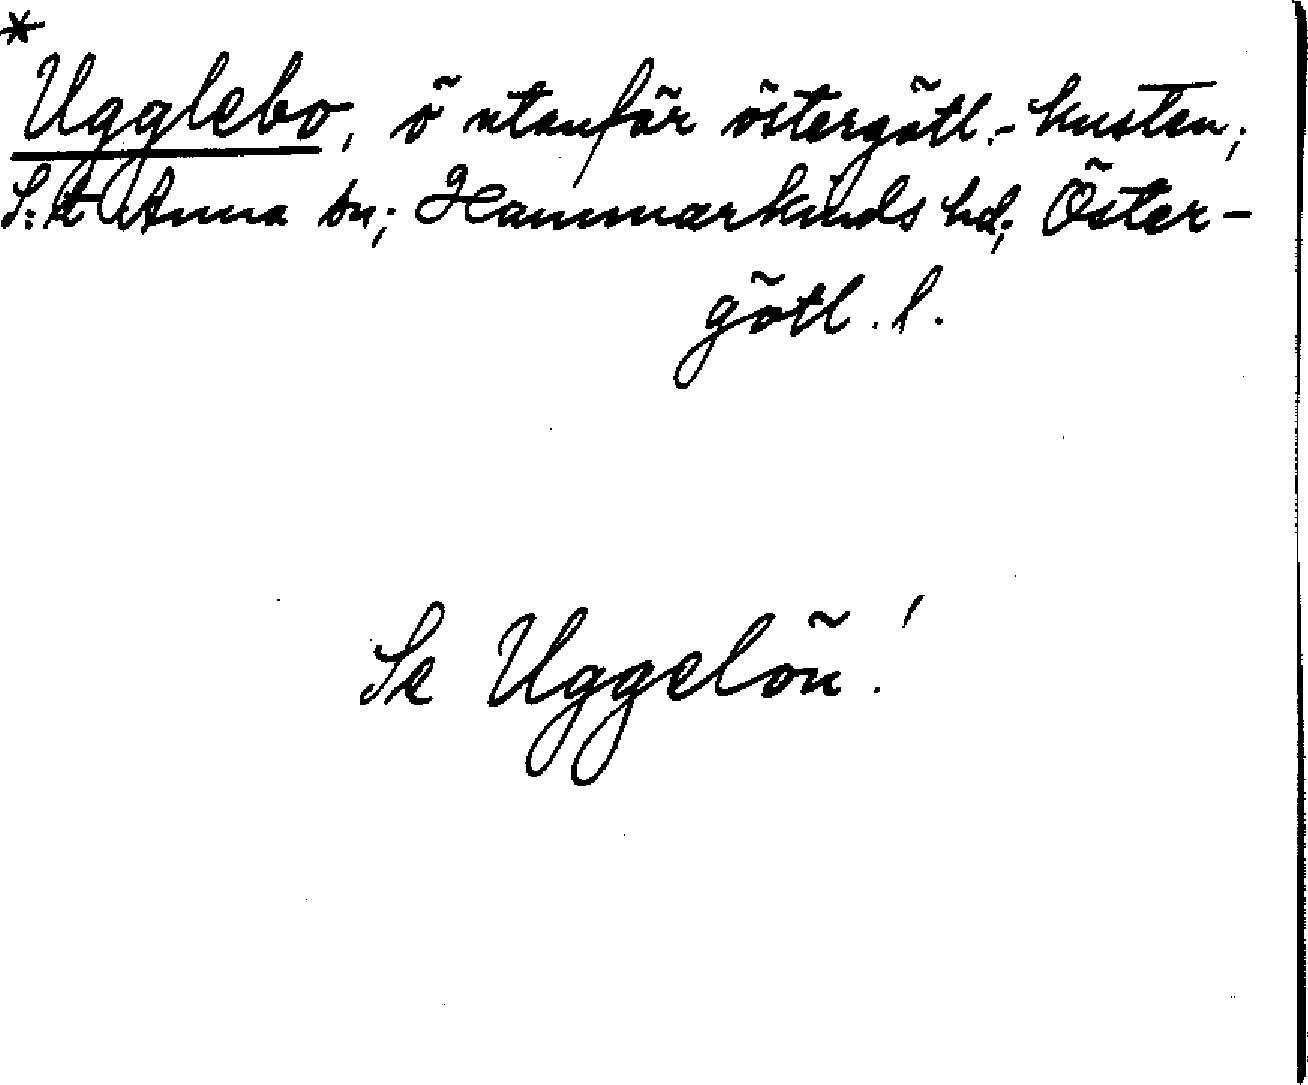 *
Ugglebo, ö utanför östergötl.-kusten;
S:t Anna sn; Hammarkinds hd; Öster-
götl. l.
Se Uggelön!